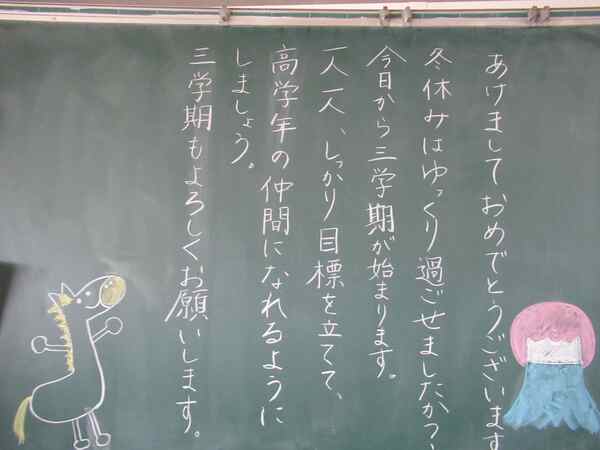 あけましておめでとうございます
冬休みはゆっくり過ごせましたか？
今日から三学期が始まります。
一人一人、しっかり目標を立てて、
高学年の仲間になれるように
しましょう。
三学期もよろしくお願いします。